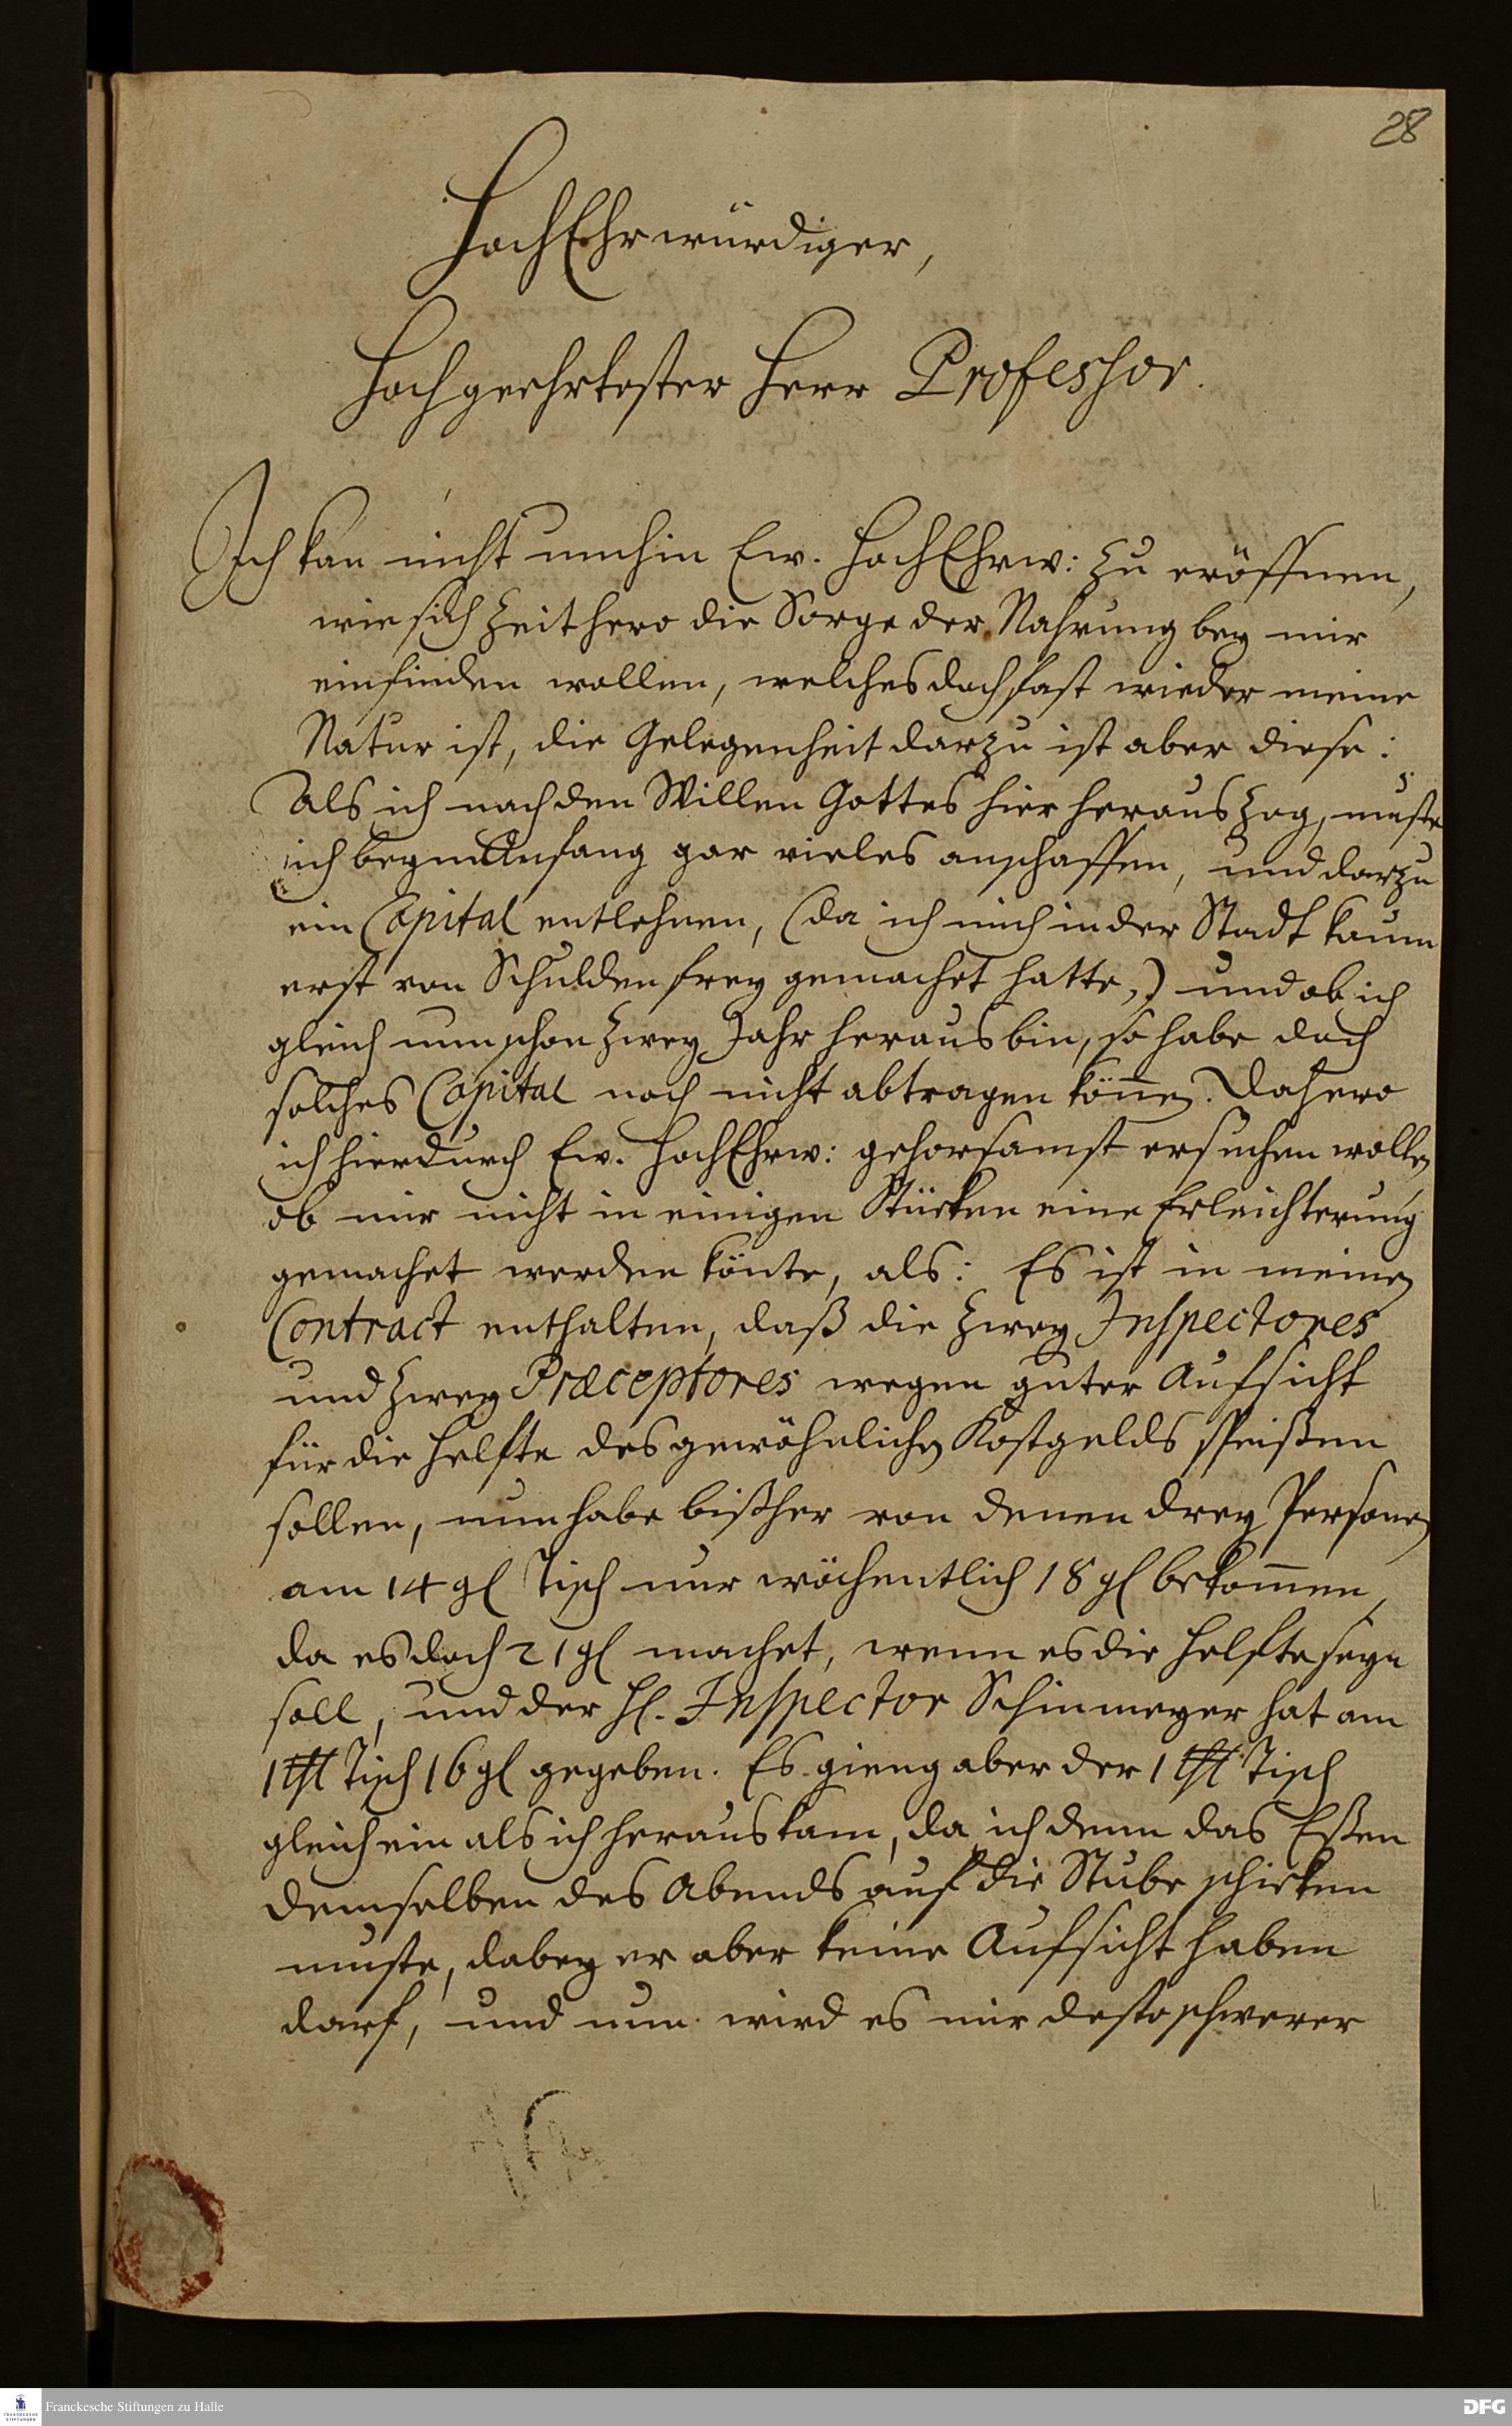 28
HochEhrwürdiger,
Hochgeehrtester Herr Professor.
Ich kan nicht umhin Ew. HochEhrw: zu eröffnen,
wie sich zeithero die Sorge der Nahrung bey mir
einfinden wollen, welches doch fast wieder meine
Natur ist, die Gelegenheit darzu ist aber diese:
Als ich nach den Willen Gottes hier heraus zog, muste
ich beym Anfang gar vieles anschaffen, und darzu
ein Capital entlehnen, (da ich mich in der Stadt kaum
erst von Schulden frey gemachet hatte,) und ob ich
gleich nun schon zwey Jahr heraus bin, so habe doch
solches Capital noch nicht abtragen könen. Dahero
ich hierdurch Ew. HochEhrw: gehorsamst ersuchen wollen
ob mir nicht in einigen Stücken eine Erleichterung
gemachet werden könte, als: Es ist in meinen
Contract enthalten, daß die zwey Inspectores
und zwey Præceptores wegen guter Aufsicht
für die Helfte des gewöhnlichen Kostgelds speißen
sollen, nun habe bißher von denen drey Personen
am 14 gl Tisch nur wöchentlich 18 gl bekom̄en,
da es doch 21 gl machet, wenn es die Helfte seyn
soll, und der H. Inspector Schinmeyer hat am
1 thl Tisch 16 gl gegeben. Es gieng aber der 1 thl Tisch
gleich ein als ich heraus kam, da ich denn das Eßen
demselben des Abends auf die Stube schicken
muste, dabey er aber keine Aufsicht haben
darf, und nun wird es mir desto schwerer
Franckesche Stiftungen zu Halle
DFG